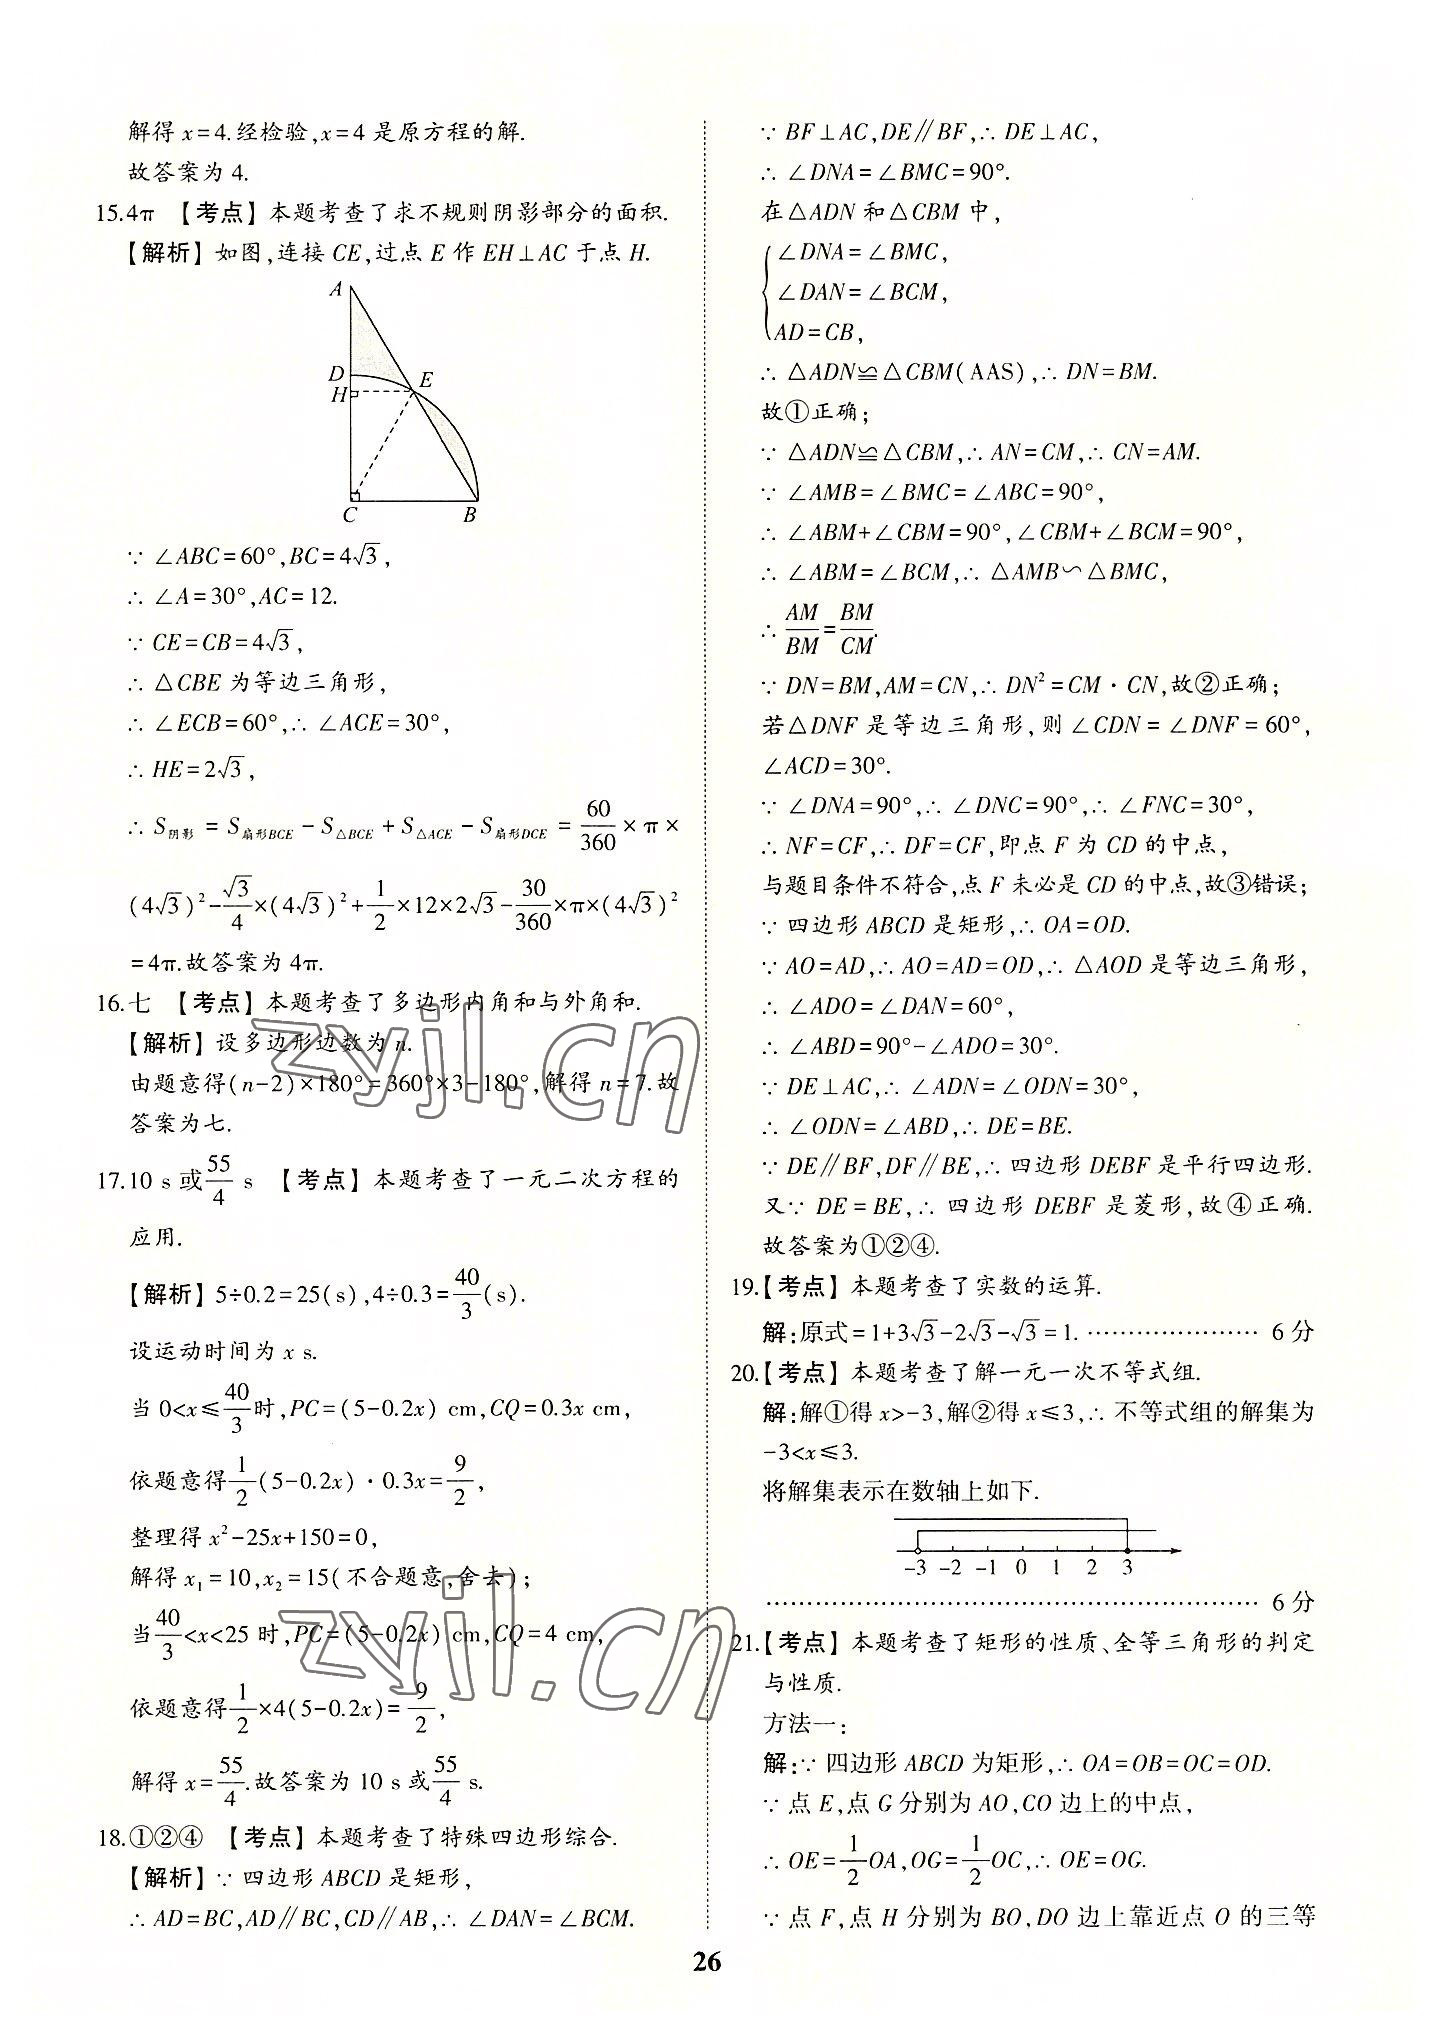 解得 x=4.经检验,x=4 是原方程的解.
故答案为 4.
15.4π 【考点】本题考查了求不规则阴影部分的面积.
【解析】如图,连接 CE,过点 E 作 EH⊥AC 于点 H.
A
D
E
H
C
B
∵ ∠ABC=60°,BC=4√3,
∴ ∠A=30°,AC=12.
∵ CE=CB=4√3,
∴ △CBE 为等边三角形,
∴ ∠ECB=60°,∴ ∠ACE=30°,
∴ HE=2√3,
∴ S阴影 = S扇形BCE - S△BCE + S△ACE - S扇形DCE = 60/360 × π ×
(4√3)²-√3/4×(4√3)²+1/2×12×2√3-30/360×π×(4√3)²
=4π.故答案为 4π.
16.七 【考点】本题考查了多边形内角和与外角和.
【解析】设多边形边数为 n.
由题意得(n-2)×180°=360°×3-180°,解得 n=7.故
答案为七.
17.10 s 或55/4 s 【考点】本题考查了一元二次方程的
应用.
【解析】5÷0.2=25(s),4÷0.3=40/3(s).
设运动时间为 x s.
当 0<x≤40/3时,PC=(5-0.2x) cm,CQ=0.3x cm,
依题意得1/2(5-0.2x)·0.3x=9/2,
整理得 x²-25x+150=0,
解得 x₁=10,x₂=15(不合题意,舍去);
当40/3<x<25 时,PC=(5-0.2x) cm,CQ=4 cm,
依题意得1/2×4(5-0.2x)=9/2,
解得 x=55/4.故答案为 10 s 或55/4 s.
18.①②④ 【考点】本题考查了特殊四边形综合.
【解析】∵ 四边形 ABCD 是矩形,
∴ AD=BC,AD∥BC,CD∥AB,∴ ∠DAN=∠BCM.
∵ BF⊥AC,DE∥BF,∴ DE⊥AC,
∴ ∠DNA=∠BMC=90°.
在△ADN 和△CBM 中,
∠DNA=∠BMC,
∠DAN=∠BCM,
AD=CB,
∴ △ADN≌△CBM(AAS),∴ DN=BM.
故①正确;
∵ △ADN≌△CBM,∴ AN=CM,∴ CN=AM.
∵ ∠AMB=∠BMC=∠ABC=90°,
∴ ∠ABM+∠CBM=90°,∠CBM+∠BCM=90°,
∴ ∠ABM=∠BCM,∴ △AMB∽△BMC,
∴ AM/BM=BM/CM.
∵ DN=BM,AM=CN,∴ DN²=CM·CN,故②正确;
若△DNF 是等边三角形,则∠CDN=∠DNF=60°,
∠ACD=30°.
∵ ∠DNA=90°,∴ ∠DNC=90°,∴ ∠FNC=30°,
∴ NF=CF,∴ DF=CF,即点 F 为 CD 的中点,
与题目条件不符合,点 F 未必是 CD 的中点,故③错误;
∵ 四边形 ABCD 是矩形,∴ OA=OD.
∵ AO=AD,∴ AO=AD=OD,∴ △AOD 是等边三角形,
∴ ∠ADO=∠DAN=60°,
∴ ∠ABD=90°-∠ADO=30°.
∵ DE⊥AC,∴ ∠ADN=∠ODN=30°,
∴ ∠ODN=∠ABD,∴ DE=BE.
∵ DE∥BF,DF∥BE,∴ 四边形 DEBF 是平行四边形.
又∵ DE=BE,∴ 四边形 DEBF 是菱形,故④正确.
故答案为①②④.
19.【考点】本题考查了实数的运算.
解:原式=1+3√3-2√3-√3=1. ………………… 6 分
20.【考点】本题考查了解一元一次不等式组.
解:解①得 x>-3,解②得 x≤3,∴ 不等式组的解集为
-3<x≤3.
将解集表示在数轴上如下.
-3 -2 -1 0 1 2 3
…………………………………………………… 6 分
21.【考点】本题考查了矩形的性质、全等三角形的判定
与性质.
方法一:
解:∵ 四边形 ABCD 为矩形,∴ OA=OB=OC=OD.
∵ 点 E,点 G 分别为 AO,CO 边上的中点,
∴ OE=1/2OA,OG=1/2OC,∴ OE=OG.
∵ 点 F,点 H 分别为 BO,DO 边上靠近点 O 的三等
26
zyjl.cn
zyjl.cn